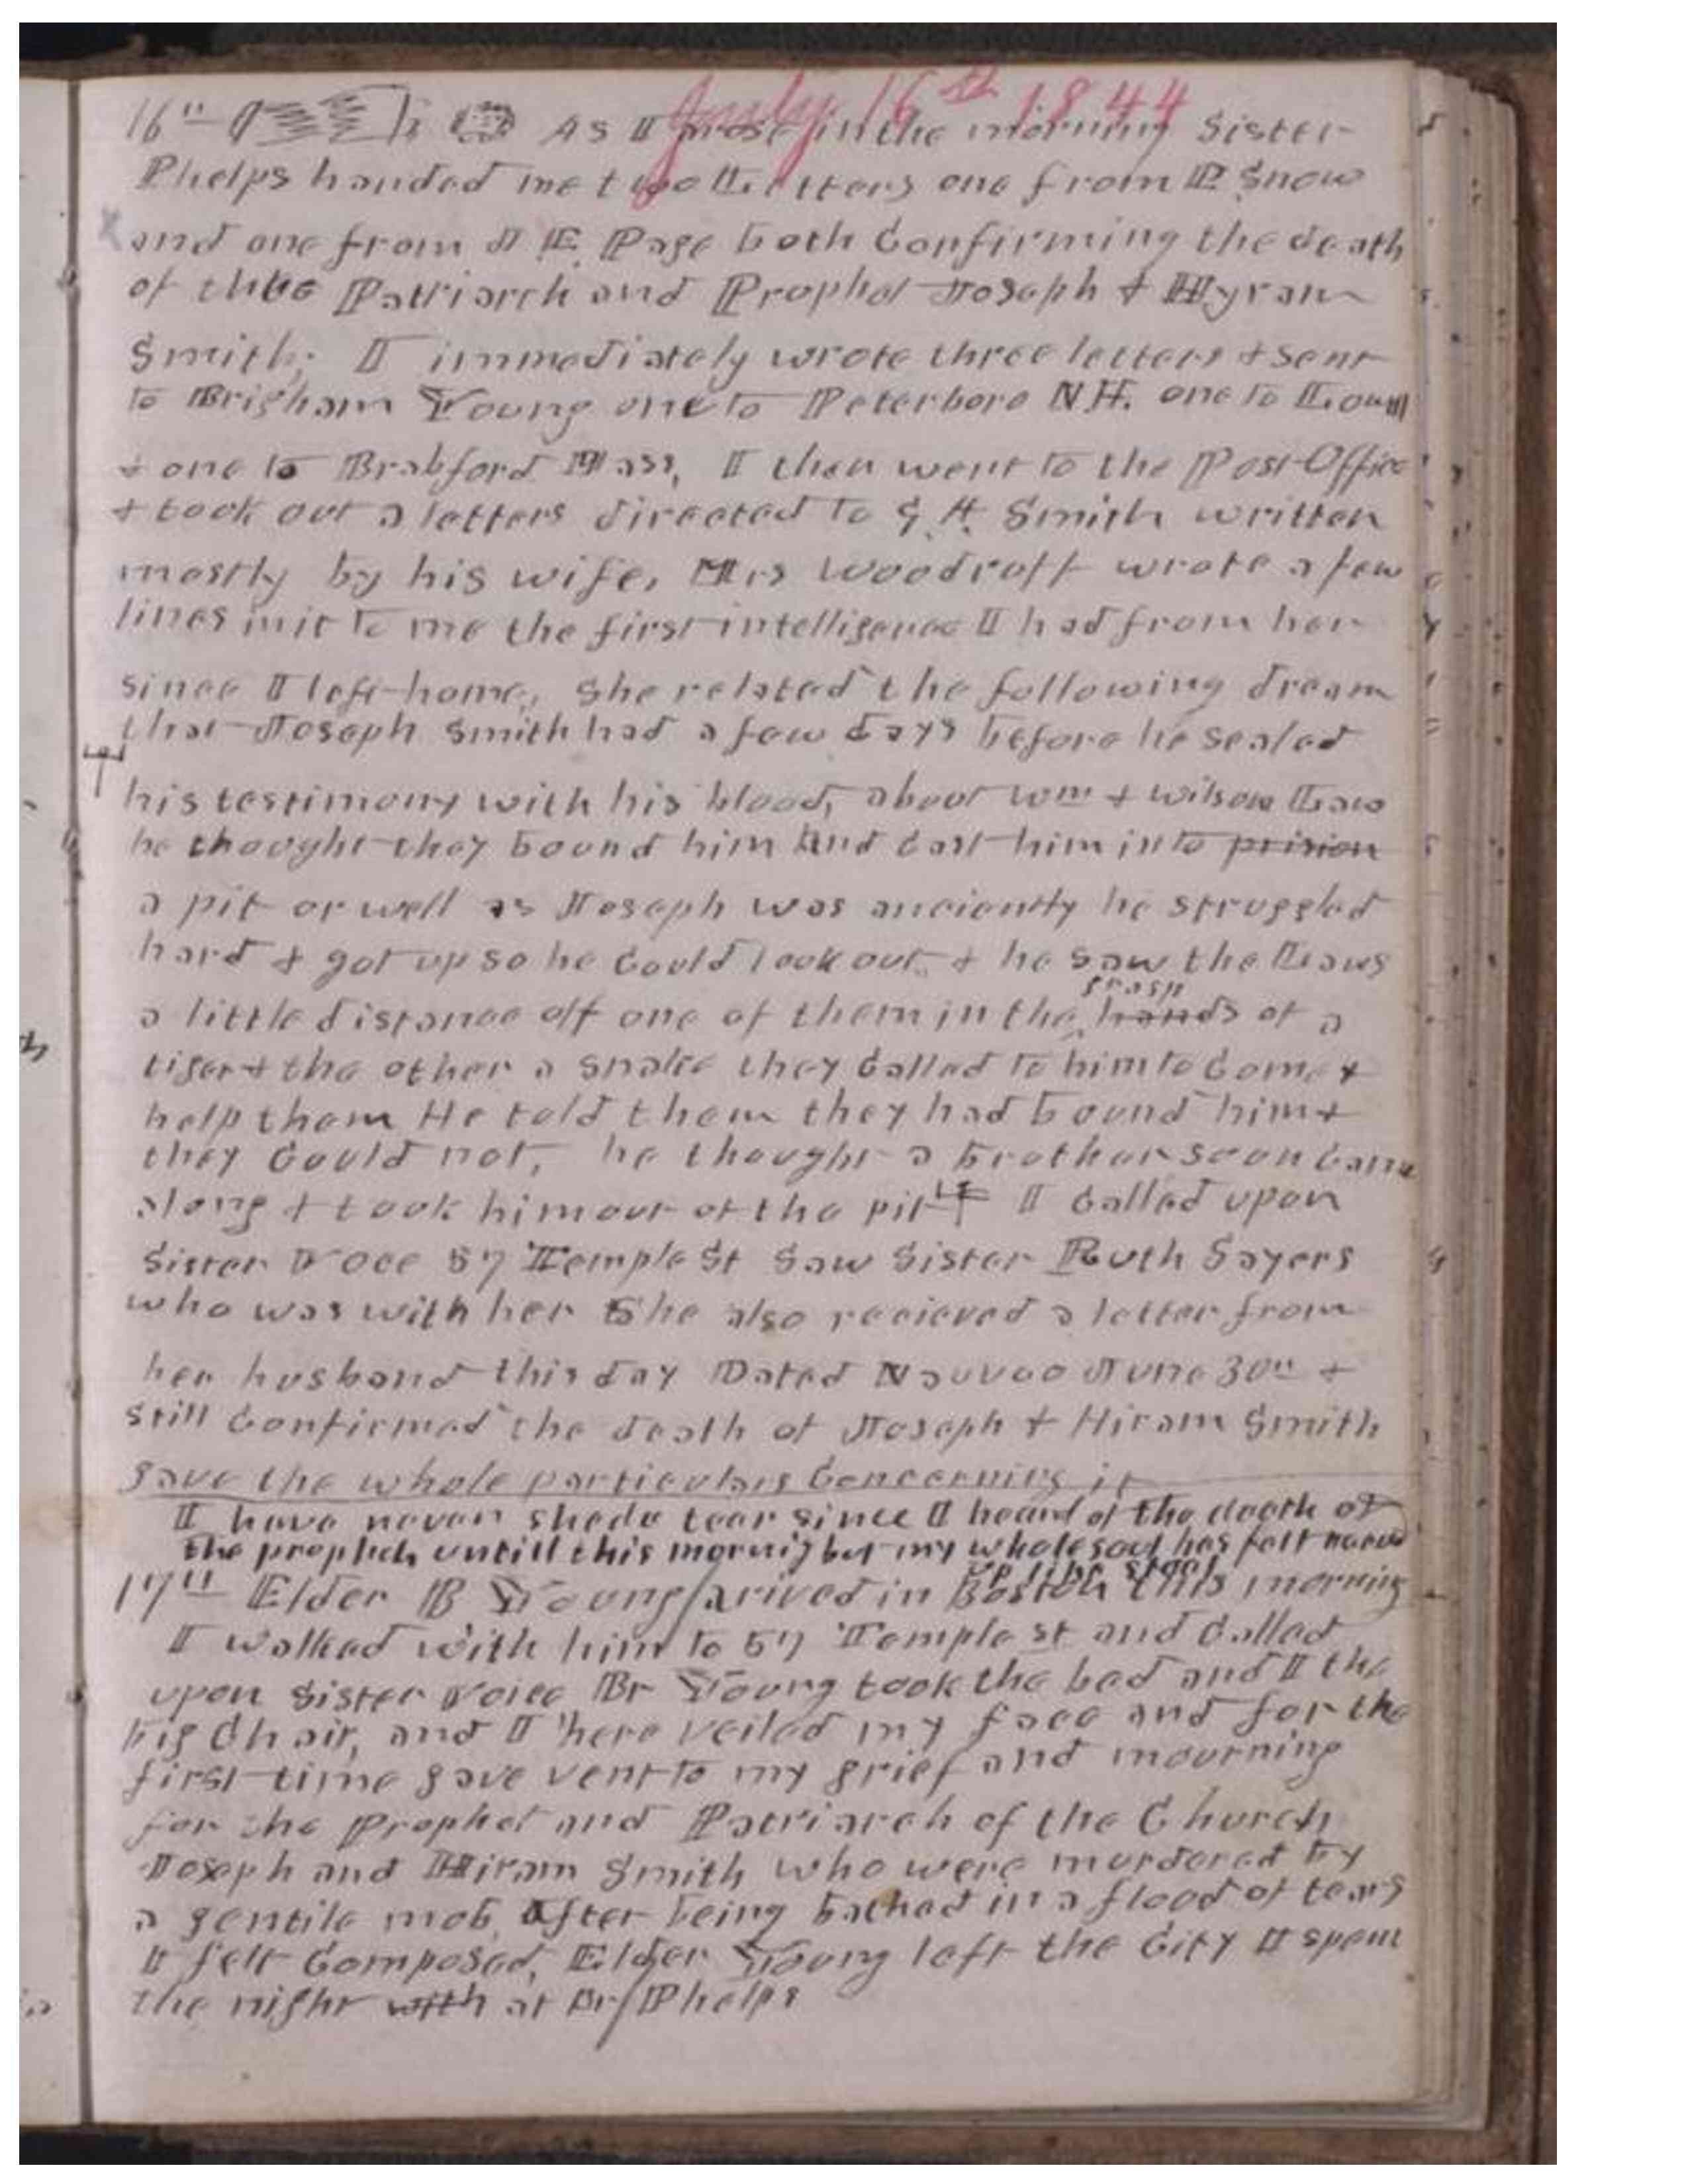 July 16th 1844
16th As I arose in the morning Sister
Phelps handed me two Letters one from E Snow
and one from J E. Page both Confirming the death
of the Patriarch and Prophet Joseph + Hyram
Smith; I immediately wrote three letters + sent
to Brigham Young one to Peterboro N.H. one to Lowell
+ one to Bradford Mass, I then went to the Post Office
+ took out a letters directed to G. A. Smith written
mostly by his wife, Mrs Woodruff wrote a few
lines in it to me the first intelligence I had from her
since I left home, She related the following dream
that Joseph Smith had a few days before he sealed
his testimony with his blood, about Wm + Wilson Law
he thought they bound him and Cast him into prision
a pit or well as Joseph was anciently he struggled
hard + got up so he Could look out + he saw the Laws
grasp
a little distance off one of them in the hands of a
tiger + the other a snake they Called to him to Come +
help them He told them they had bound him +
they Could not, he thought a brother soon Came
along + took him out of the pit I Called upon
Sister Voce 57 Temple St Saw Sister Ruth Sayers
who was with her She also recieved a letter from
her husband this day Dated Nauvoo June 30th +
still Confirmed the death of Joseph + Hiram Smith
gave the whole particulars Concerning it
I have never shed a tear since I heard of the death of
the prophets untill this mornig but my whole soul has felt nerved
up like steel
17th Elder B Young arived in Boston this morning
I walked with him to 57 Temple st and Called
upon Sister Voice Br Young took the bed and I the
big Chair, and I here veiled my face and for the
first time gave vent to my grief and mourning
for the Prophet and Patriarch of the Church
Joseph and Hiram Smith who were murdered by
a gentile mob, After being bathed in a flood of tears
I felt Composed, Elder Young left the City I spent
the night with at Br Phelps